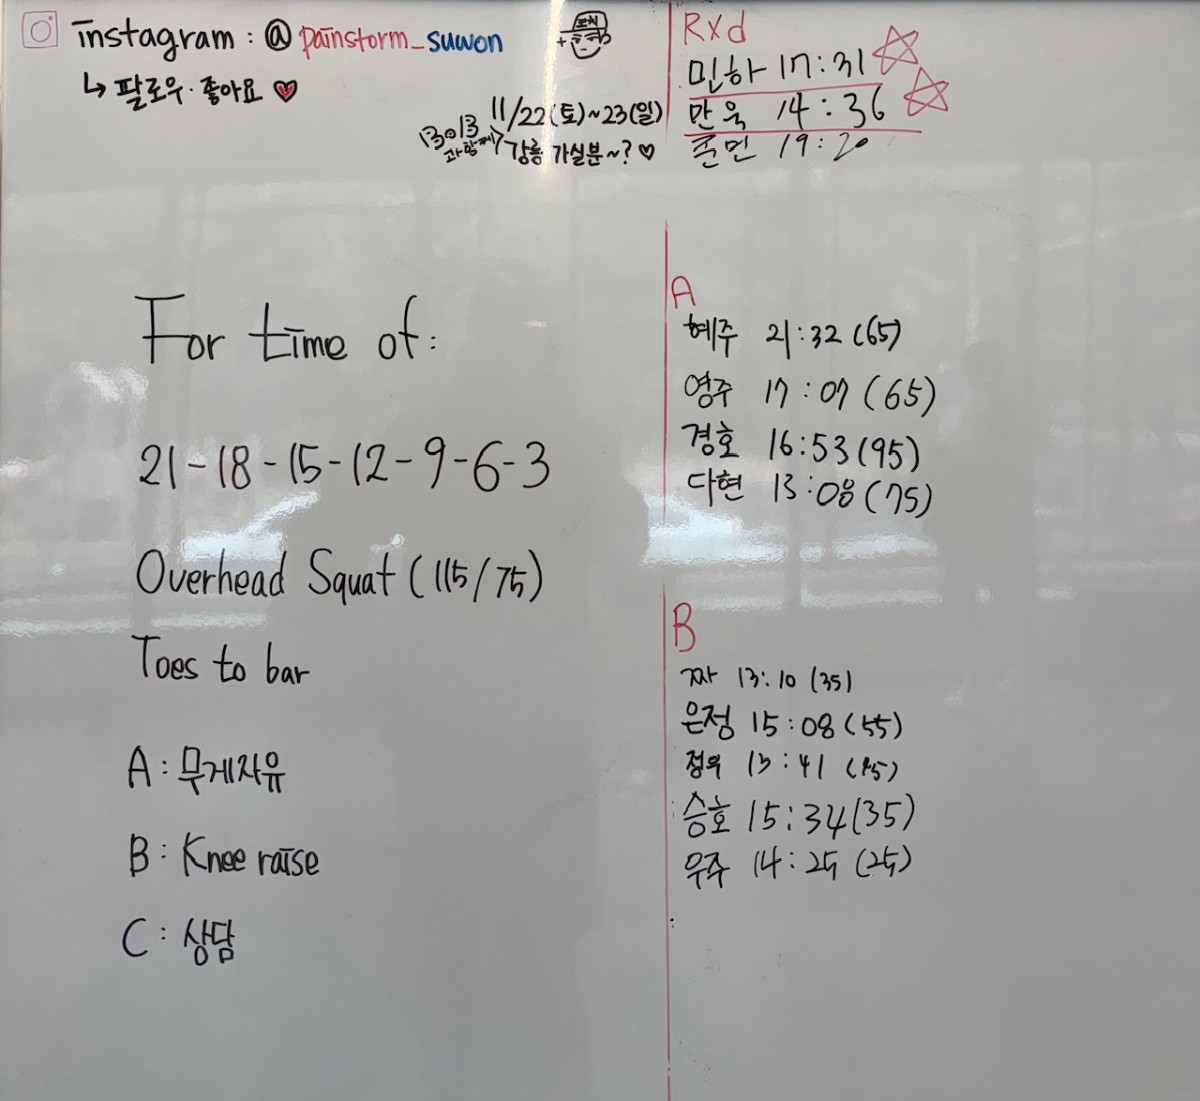 instagram : @ painstorm_suwon
↳ 팔로우·좋아요 ♥
코치
11/22(토)~23(일)
과 함께
강릉 가실분~? ♡
For time of:
21-18-15-12-9-6-3
Overhead Squat (115/75)
Toes to bar
A : 무게자유
B : Knee raise
C : 상담
Rxd
민하 17:31
만욱 14:36
준민 19:20
A
혜주 21:32 (65)
영주 17:07 (65)
경호 16:53 (95)
다현 13:08 (75)
B
짜 13:10 (35)
은정 15:08 (55)
13:41
승호 15:34 (35)
우주 14:25 (25)